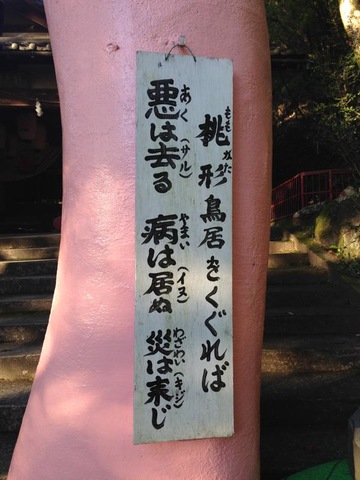 桃形鳥居をくぐれば
ももがた
悪は去る(サル) 病は居ぬ(イヌ) 災は来じ(キジ)
あく やまい わざわい